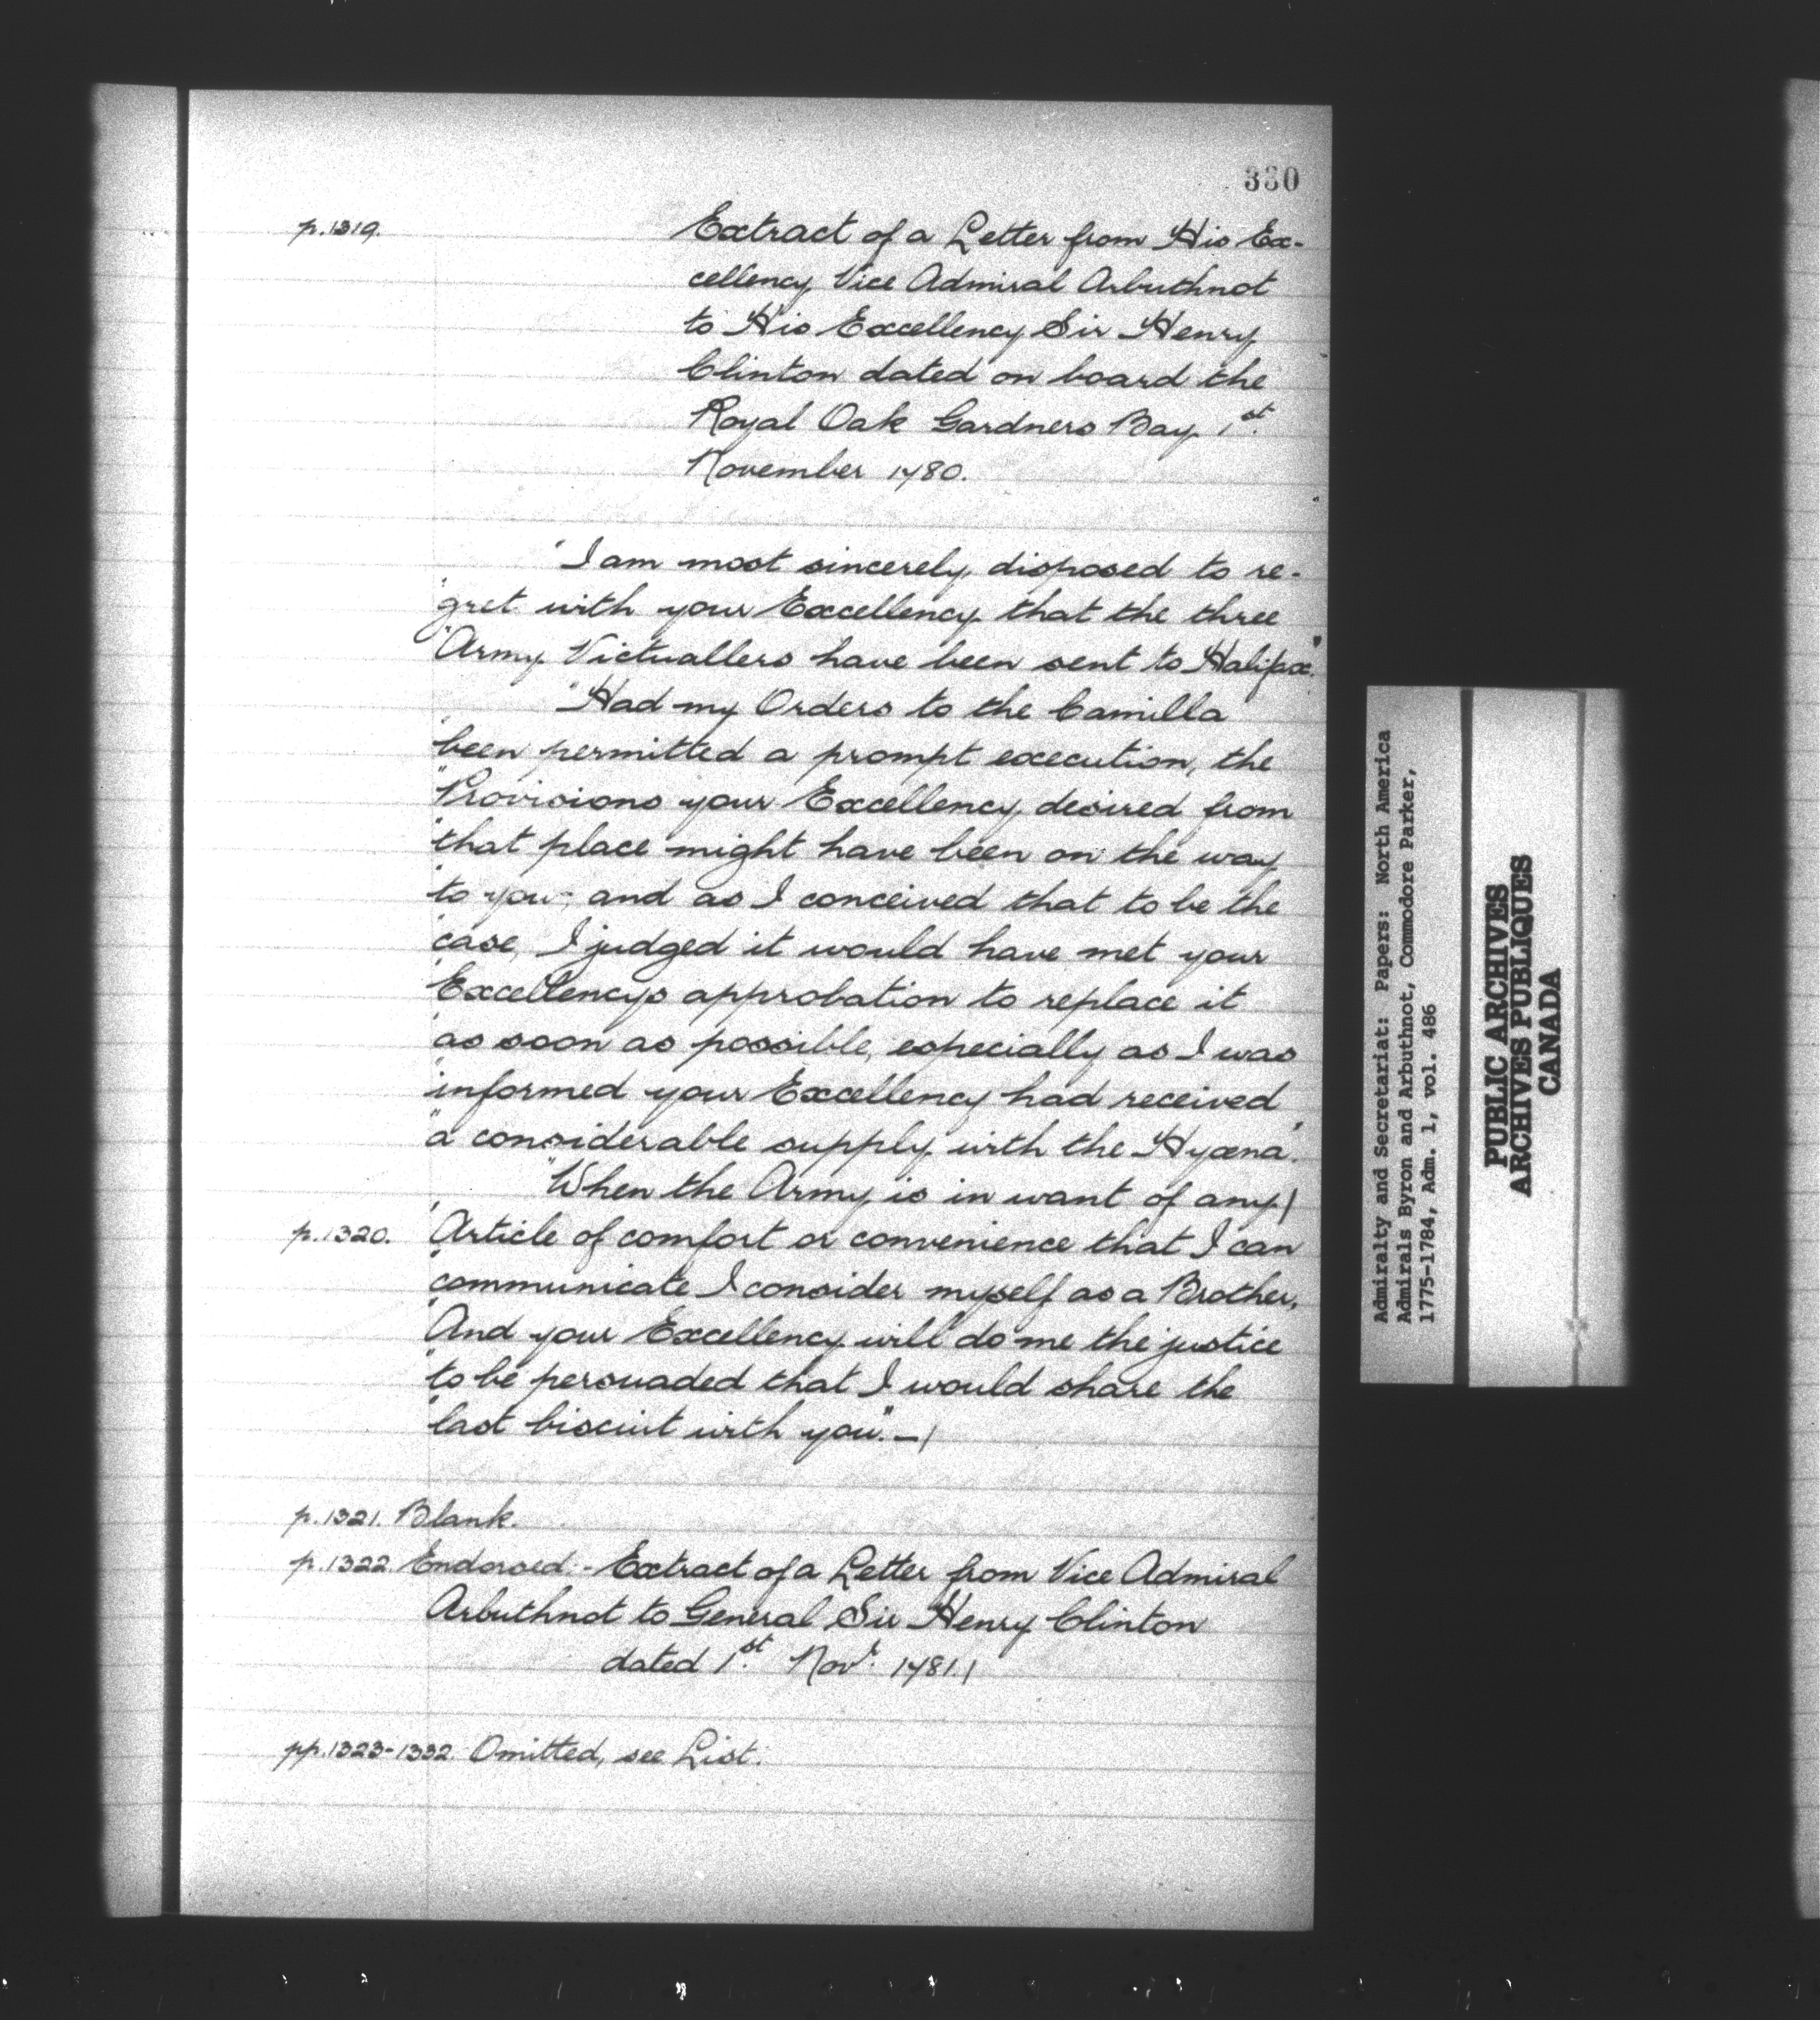 330
p.1319.
Extract of a Letter from His Ex-
cellency Vice Admiral Arbuthnot
to His Excellency Sir Henry
Clinton dated on board the
Royal Oak Gardners Bay 1st.
November 1780.
"I am most sincerely disposed to re-
"gret with your Excellency that the three
"Army Victuallers have been sent to Halifax."
"Had my Orders to the Camilla
"been permitted a prompt execution, the
"Provisions your Excellency desired from
"that place might have been on the way
"to you; and as I conceived that to be the
"case, I judged it would have met your
"Excellencys approbation to replace it
"as soon as possible, especially as I was
"informed your Excellency had received
"a considerable supply with the Hyæna".
"When the Army is in want of any/
p.1320. "Article of comfort or convenience that I can
"communicate I consider myself as a Brother,
"And your Excellency will do me the justice
"to be persuaded that I would share the
"last biscuit with you". —/
p.1321. Blank.
p.1322. Endorsed:- Extract of a Letter from Vice Admiral
Arbuthnot to General Sir Henry Clinton
dated 1st. Novr. 1781./
pp.1323-1332. Omitted, see List.
Admiralty and Secretariat: Papers: North America
Admirals Byron and Arbuthnot, Commodore Parker,
1775-1784, Adm. 1, vol. 486
PUBLIC ARCHIVES
ARCHIVES PUBLIQUES
CANADA